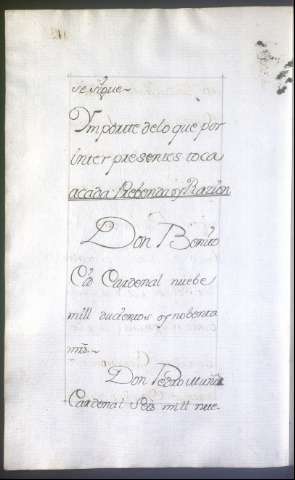 se sigue~
Ymporte delo que por
inter presentes toca
acada Prebenda oy Razion
Don Benito
Cid Cardenal nuebe
mill ducientos oy nobenta
mrs~
Don Pedro Muñiz
Cardenal Seis mill nue-